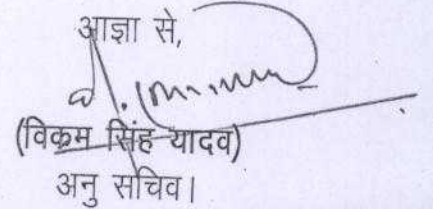 आज्ञा से,
(विक्रम सिंह यादव)
अनु सचिव।